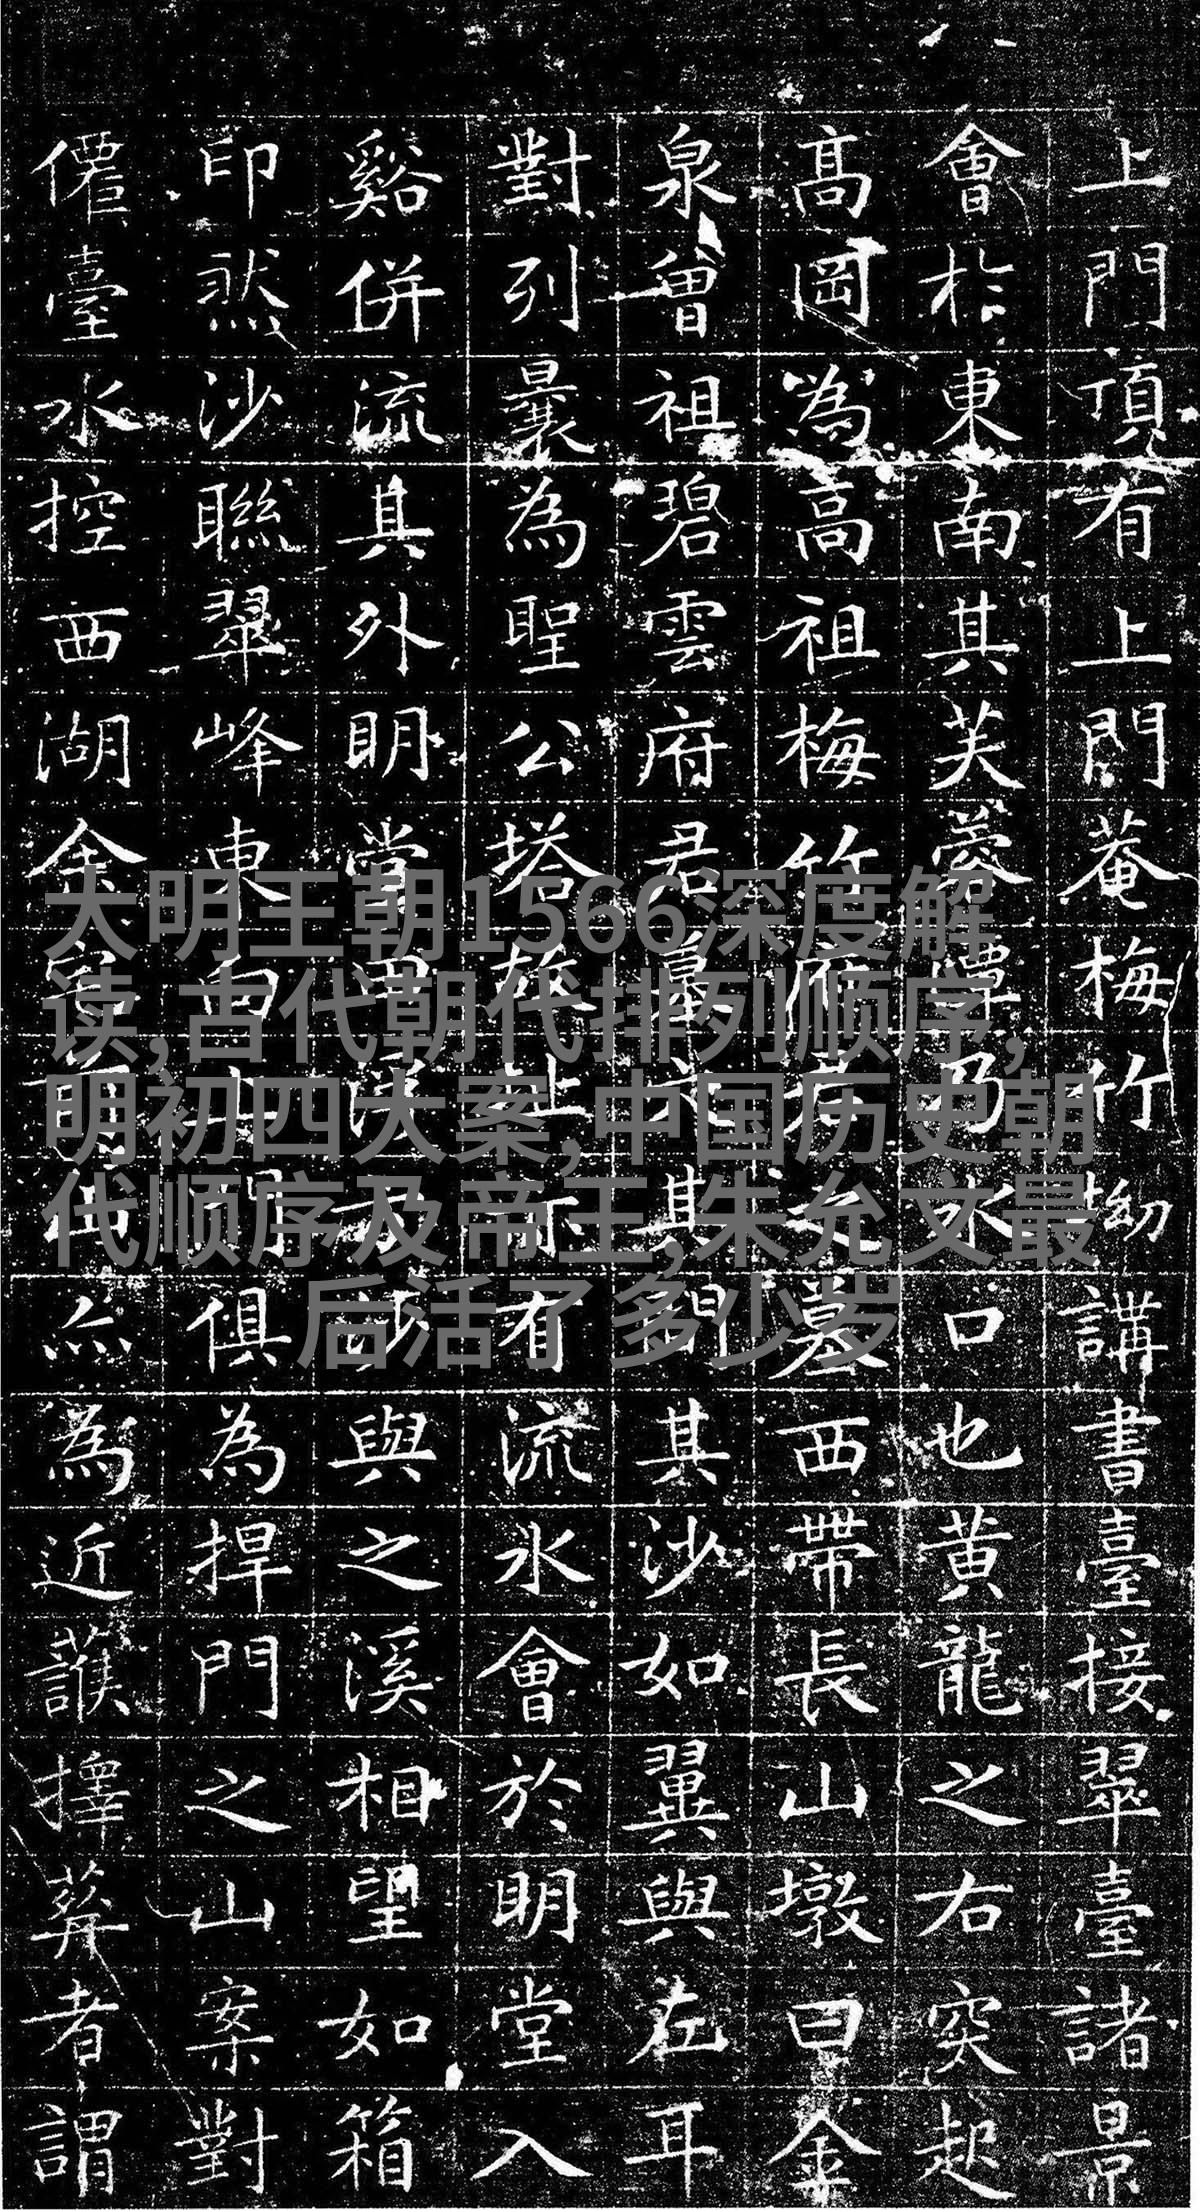 上門頂有上門菴梅竹㓜講書臺接翠臺諸景
會於東南其芙蓉潭乃水口也黃龍之右突起
高岡為高祖梅竹府君之墓西帶長山墩曰金
泉曾祖碧雲府君墓其間其沙如翼與左耳
對列曩為聖公塔故址有流水會於明堂入
谿併流其外明堂沙與之溪相望如箱
印然沙聯翠峰東西俱為捍門之山案對
僊臺水控西湖金為近擇葬者謂
大明王朝1566深度解
读,古代朝代排列顺序,
明初四大案,中国历史朝
代顺序及帝王,朱允文最
后活了多少岁